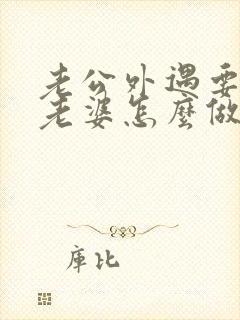 老公外遇要
老婆怎麼做
庫比